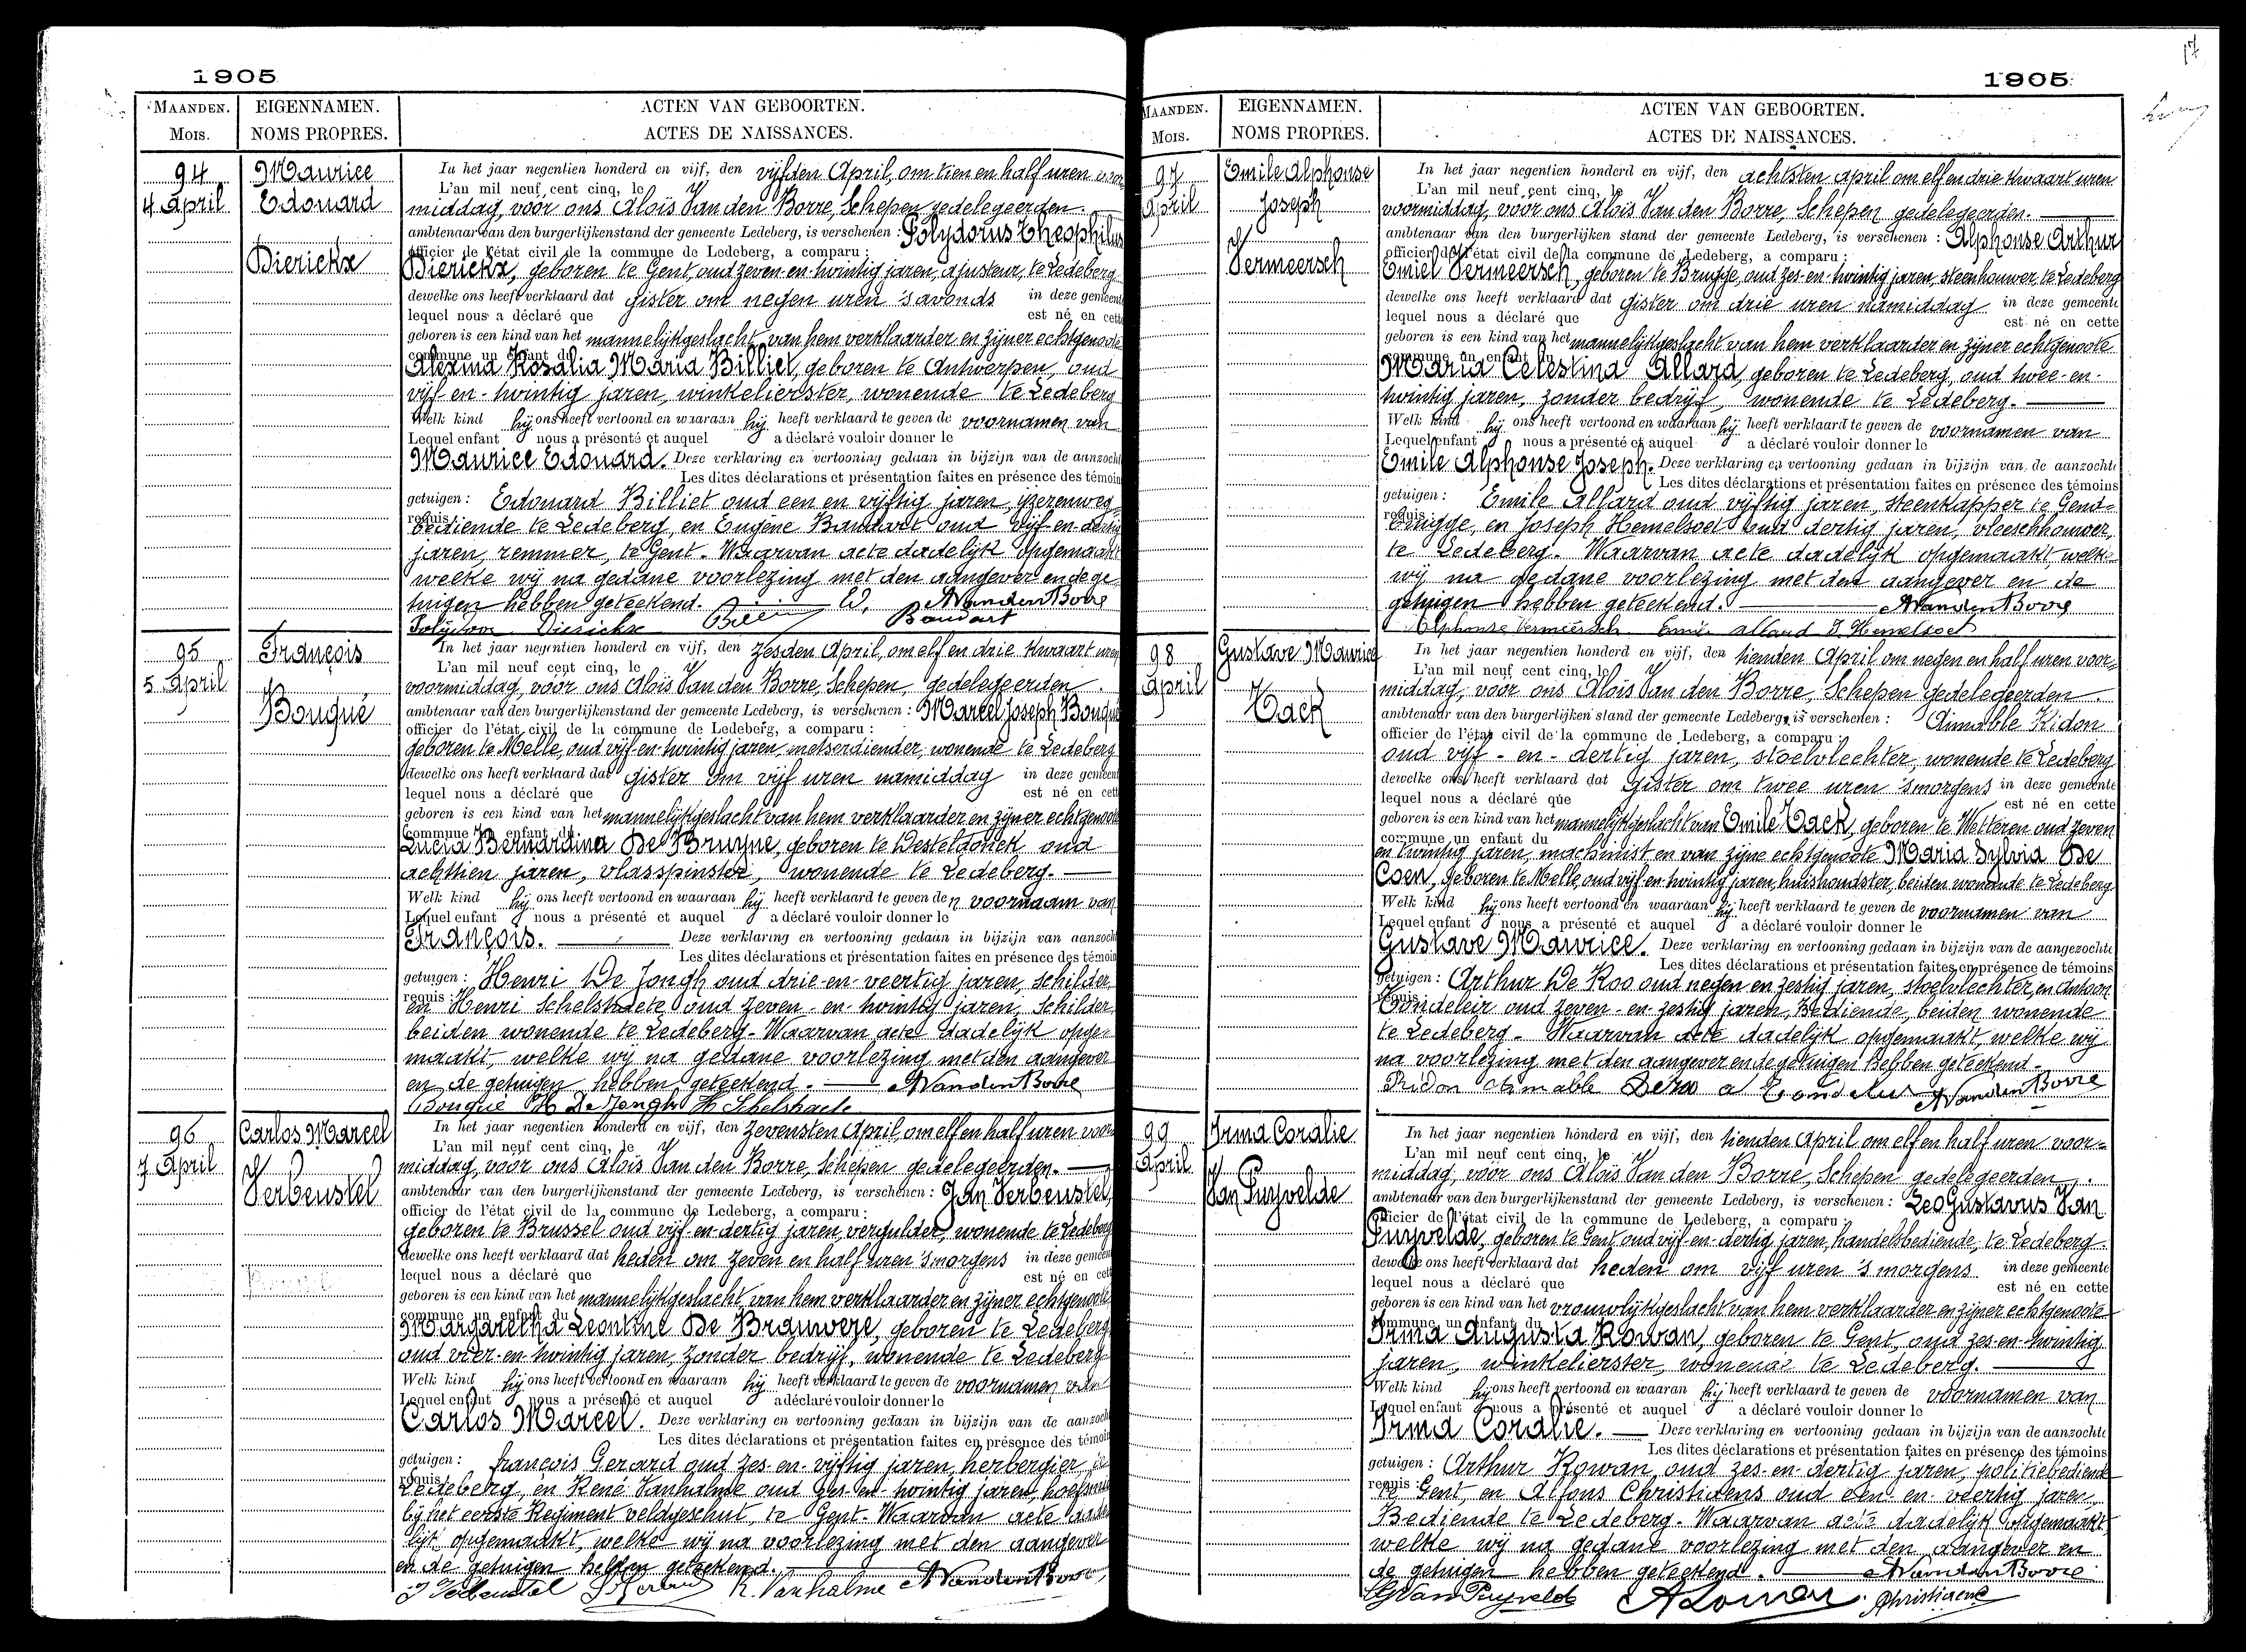 1905
MAANDEN.
Mois.
EIGENNAMEN.
NOMS PROPRES.
ACTEN VAN GEBOORTEN.
ACTES DE NAISSANCES.
94
4 April
Maurice
Edouard
Dierickx
In het jaar negentien honderd en vijf, den vijfden April, om tien en half uren voor
L'an mil neuf cent cinq, le
middag, voor ons Aloïs Van den Borre, Schepen gedelegeerden.
ambtenaar van den burgerlijkenstand der gemeente Ledeberg, is verschenen : Polydorus Theophilus
officier de l'état civil de la commune de Ledeberg, a comparu :
Dierickx, geboren te Gent, oud zeven-en-twintig jaren, ajusteur, te Ledeberg
dewelke ons heeft verklaard dat gister om negen uren 's avonds in deze gemeente
lequel nous a déclaré que est né en cette
geboren is een kind van het mannelijkgeslacht, van hem verklaarder en zijner echtgenoote
commune un enfant du
Alexina Rosalia Maria Billiet, geboren te Antwerpen, oud
vijf-en-twintig jaren, winkelierster, wonende te Ledeberg
Welk kind hij ons heeft vertoond en waaraan hij heeft verklaard te geven de voornamen van
Lequel enfant nous a présenté et auquel a déclaré vouloir donner le
Maurice Edouard. Deze verklaring en vertooning gedaan in bijzijn van de aanzocht
Les dites déclarations et présentation faites en présence des témoin
getuigen : Edouard Billiet oud een en vijftig jaren, yzerenweg
requis :
bediende te Ledeberg, en Eugène Baudart oud vijf-en-dertig
jaren, remmer, te Gent. Waarvan acte dadelijk opgemaakt
welke wij na gedane voorlezing met den aangever en de ge-
tuigen hebben geteekend. AVandenBorre
Polydoor Dierickx Baudart
95
5 April
François
Bouqué
In het jaar negentien honderd en vijf, den zesden April, om elf en drie kwaart uren
L'an mil neuf cent cinq, le
voormiddag, voor ons Aloïs Van den Borre, Schepen, gedelegeerden.
ambtenaar van den burgerlijkenstand der gemeente Ledeberg, is verschenen : Marcel Joseph Bouqué
officier de l'état civil de la commune de Ledeberg, a comparu :
geboren te Melle, oud vijf-en-twintig jaren, metserdiender, wonende te Ledeberg
dewelke ons heeft verklaard dat gister om vijf uren namiddag in deze gemeent
lequel nous a déclaré que est né en cett
geboren is een kind van het mannelijkgeslacht van hem verklaarder en zijner echtgenoote
commune un enfant du
Lucia Bernardina De Bruyne, geboren te Desteldonck oud
achttien jaren, vlasspinster, wonende te Ledeberg.
Welk kind hij ons heeft vertoond en waaraan hij heeft verklaard te geven den voornaam van
Lequel enfant nous a présenté et auquel a déclaré vouloir donner le
François. Deze verklaring en vertooning gedaan in bijzijn van aanzocht
Les dites déclarations et présentation faites en présence des témoin
getuigen : Henri De Jongh oud drie-en-veertig jaren, schilder
requis :
en Henri Schelstraete oud zeven-en-twintig jaren, schilder,
beiden wonende te Ledeberg. Waarvan acte dadelijk opge-
maakt, welke wij na gedane voorlezing met den aangever
en de getuigen hebben geteekend. AVandenBorre
Bouqué H De Jongh H Schelstraete
96
7 April
Carlos Marcel
Verbeustel
In het jaar negentien honderd en vijf, den zevensten April, om elf en half uren voor
L'an mil neuf cent cinq, le
middag, voor ons Aloïs Van den Borre, Schepen gedelegeerden.
ambtenaar van den burgerlijkenstand der gemeente Ledeberg, is verschenen : Jan Verbeustel,
officier de l'état civil de la commune de Ledeberg, a comparu :
geboren te Brussel oud vijf-en-dertig jaren, vergulder, wonende te Ledeberg
dewelke ons heeft verklaard dat heden om zeven en half uren 'smorgens in deze gemeen
lequel nous a déclaré que est né en cett
geboren is een kind van het mannelijkgeslacht, van hem verklaarder en zijner echtgenoote
commune un enfant du
Margaretha Leontine De Brauwere, geboren te Ledeberg
oud vier-en-twintig jaren, zonder bedrijf, wonende te Ledeberg
Welk kind hij ons heeft vertoond en waaraan hij heeft verklaard te geven de voornamen van
Lequel enfant nous a présenté et auquel a déclaré vouloir donner le
Carlos Marcel. Deze verklaring en vertooning gedaan in bijzijn van de aanzocht
Les dites déclarations et présentation faites en présence des témoin
getuigen : François Gerard oud zes-en-vijftig jaren, herbergier, te
requis :
Ledeberg, en René Vanhalme oud zes-en-twintig jaren, hoefsmid
bij het eerste Regiment veldgeschut, te Gent. Waarvan acte dade
lijk opgemaakt, welke wij na voorlezing met den aangever
en de getuigen hebben geteekend.
J Verbeustel R. Vanhalme AVandenBorre
1905
17
MAANDEN.
Mois.
EIGENNAMEN.
NOMS PROPRES.
ACTEN VAN GEBOORTEN.
ACTES DE NAISSANCES.
97
April
Emile Alphonse
Joseph
Vermeersch
In het jaar negentien honderd en vijf, den achtsten April om elf en drie kwaart uren
L'an mil neuf cent cinq, le
voormiddag, voor ons Aloïs Van den Borre, Schepen gedelegeerden.
ambtenaar van den burgerlijken stand der gemeente Ledeberg, is verschenen : Alphonse Arthur
officier de l'état civil de la commune de Ledeberg, a comparu :
Emiel Vermeersch, geboren te Brugge, oud zes-en-twintig jaren, steenhouwer, te Ledeberg
dewelke ons heeft verklaard dat gister om drie uren namiddag in deze gemeente
lequel nous a déclaré que est né en cette
geboren is een kind van het mannelijkgeslacht van hem verklaarder en zijner echtgenoote
commune un enfant du
Maria Celestina Allard, geboren te Ledeberg, oud twee-en-
twintig jaren, zonder bedrijf, wonende te Ledeberg.
Welk kind hij ons heeft vertoond en waaraan hij heeft verklaard te geven de voornamen van
Lequel enfant nous a présenté et auquel a déclaré vouloir donner le
Emile Alphonse Joseph. Deze verklaring en vertooning gedaan in bijzijn van de aanzochte
Les dites déclarations et présentation faites en présence des témoins
getuigen : Emile Allard oud vijftig jaren, steenkapper te Gend-
requis :
brugge, en Joseph Hemelsoet oud dertig jaren, vleeschhouwer,
te Ledeberg. Waarvan acte dadelijk opgemaakt, welke
wij na gedane voorlezing met den aangever en de
getuigen hebben geteekend. AVandenBorre
Alphonse Vermeersch Emile Allard J. Hemelsoet
98
April
Gustave Maurice
Tack
In het jaar negentien honderd en vijf, den tienden April om negen en half uren voor-
L'an mil neuf cent cinq, le
middag, voor ons Aloïs Van den Borre, Schepen gedelegeerden.
ambtenaar van den burgerlijken stand der gemeente Ledeberg, is verschenen : Aimable Ridon
officier de l'état civil de la commune de Ledeberg, a comparu :
oud vijf-en-dertig jaren, stoelvlechter, wonende te Ledeberg
dewelke ons heeft verklaard dat gister om twee uren 'smorgens in deze gemeente
lequel nous a déclaré que est né en cette
geboren is een kind van het mannelijkgeslacht van Emile Tack, geboren te Wetteren oud zeven
commune un enfant du
en twintig jaren, machinist en van zijne echtgenoote Maria Sylvia De
Coen, geboren te Melle, oud vijf-en-twintig jaren, huishoudster, beiden wonende te Ledeberg
Welk kind hij ons heeft vertoond en waaraan hij heeft verklaard te geven de voornamen van
Lequel enfant nous a présenté et auquel a déclaré vouloir donner le
Gustave Maurice. Deze verklaring en vertooning gedaan in bijzijn van de aangezochte
Les dites déclarations et présentation faites en présence de témoins
getuigen : Arthur De Roo oud negen en zestig jaren, stoelvlechter, en Antoon
requis :
Condeleir oud zeven-en-zestig jaren, Bediende, beiden wonende
te Ledeberg. Waarvan acte dadelijk opgemaakt, welke wij
na voorlezing met den aangever en de getuigen hebben geteekend.
Ridon Aimable Deroo a AVandenBorre
99
April
Irma Coralie
Van Puyvelde
In het jaar negentien honderd en vijf, den tienden April om elf en half uren voor-
L'an mil neuf cent cinq, le
middag, voor ons Aloïs Van den Borre, Schepen gedelegeerden.
ambtenaar van den burgerlijkenstand der gemeente Ledeberg, is verschenen : Leo Gustavus Van
officier de l'état civil de la commune de Ledeberg, a comparu :
Puyvelde, geboren te Gent oud vijf-en-dertig jaren, handelsbediende, te Ledeberg.
dewelke ons heeft verklaard dat heden om vijf uren 's morgens in deze gemeente
lequel nous a déclaré que est né en cette
geboren is een kind van het vrouwlijkgeslacht van hem verklaarder en zijner echtgenoote
commune un enfant du
Irma Augusta Rowan, geboren te Gent, oud zes-en-twintig
jaren, winkelierster, wonende te Ledeberg.
Welk kind hij ons heeft vertoond en waaran hij heeft verklaard te geven de voornamen van
Lequel enfant nous a présenté et auquel a déclaré vouloir donner le
Irma Coralie. Deze verklaring en vertooning gedaan in bijzijn van de aanzochte
Les dites déclarations et présentation faites en présence des témoins
getuigen : Arthur Rowan, oud zes-en-dertig jaren, politiebediende
requis :
te Gent, en Alfons Christiaens oud een-en-veertig jaren,
Bediende te Ledeberg. Waarvan acte dadelijk opgemaakt
welke wij na gedane voorlezing met den aangever en
de getuigen hebben geteekend. AVandenBorre
LGVanPuyvelde ARowan Christiaens